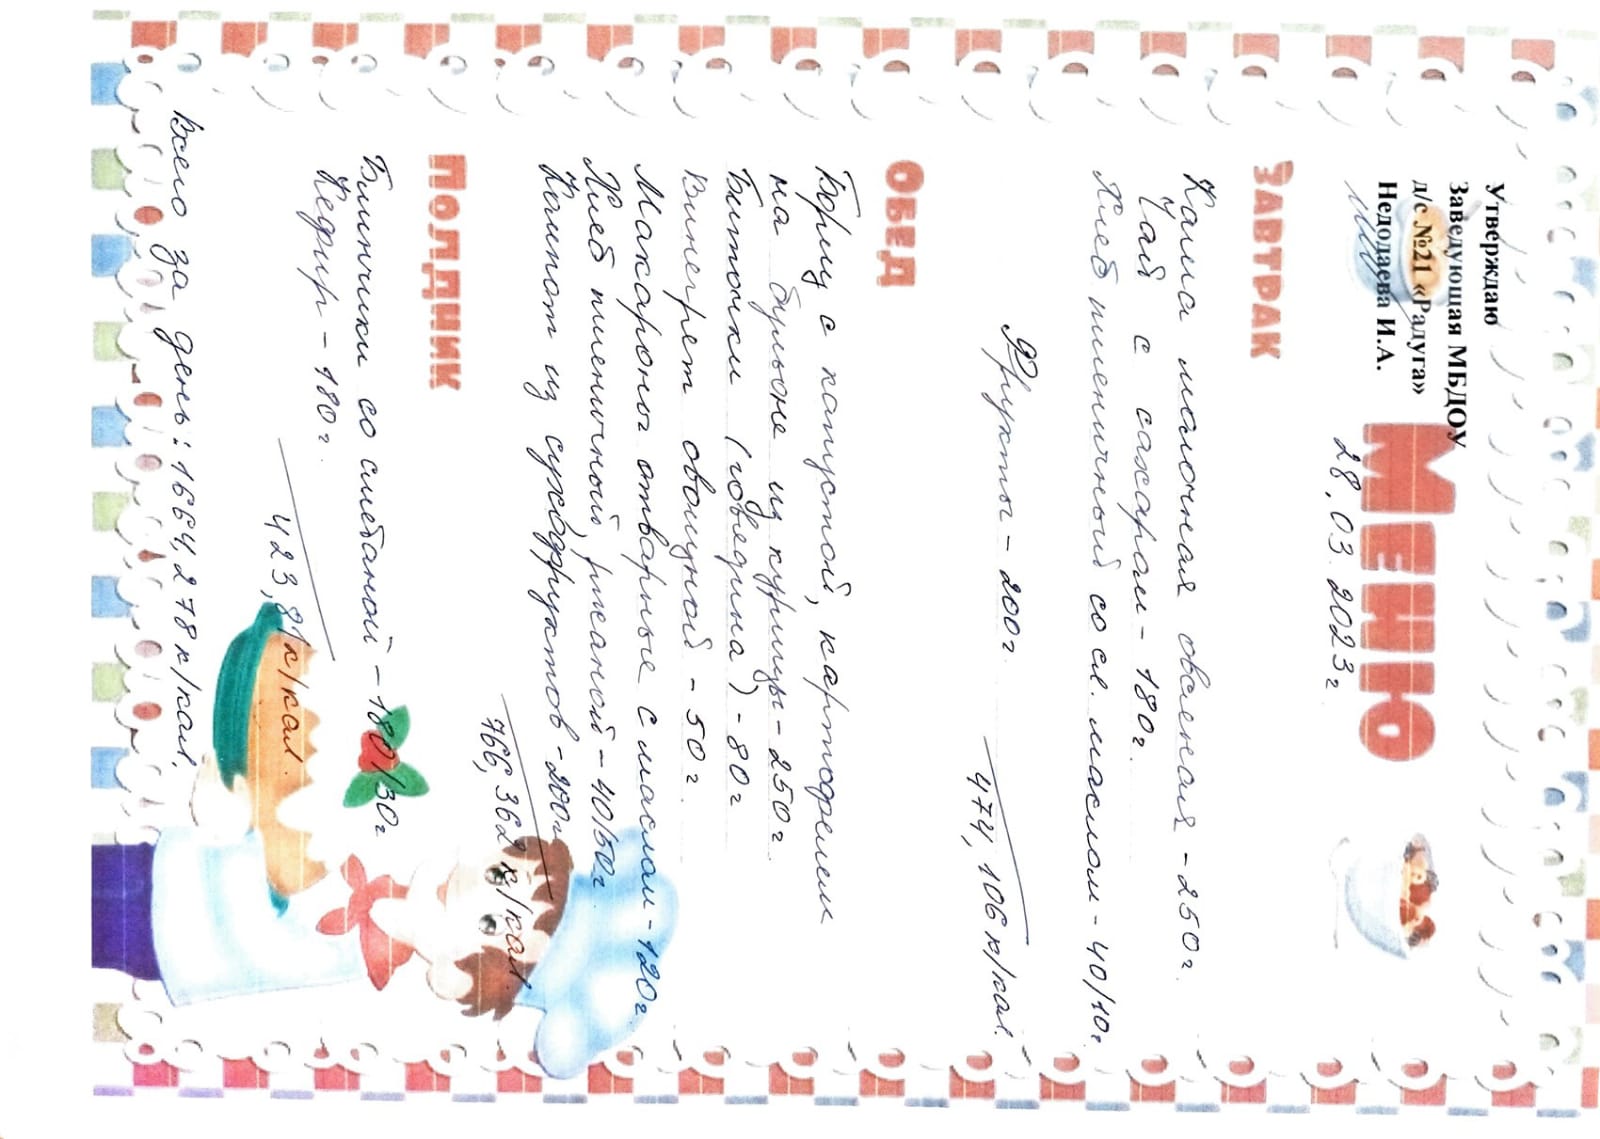 Утверждаю
Заведующая МБДОУ
д/с №21 «Радуга»
Недодаева И.А.
МЕНЮ
28.03.2023г
ЗАВТРАК
Каша молочная овсяная - 250г.
Чай с сахаром - 180г.
Хлеб пшеничный со сл. маслом - 40/10г.
Фрукты - 200г.
474,106 к/кал.
ОБЕД
Борщ с капустой, картофелем
на бульоне из курицы - 250г.
Биточки (говядина) - 80г
Винегрет овощной - 50г.
Макароны отварные с маслом - 120г.
Хлеб пшеничный, ржаной - 40/50г.
Компот из сухофруктов - 200г.
766,362 к/кал.
ПОЛДНИК
Блинчики со сметаной - 180/30г
Кефир - 180г.
423,81 к/кал.
Всего за день: 1664,278 к/кал.